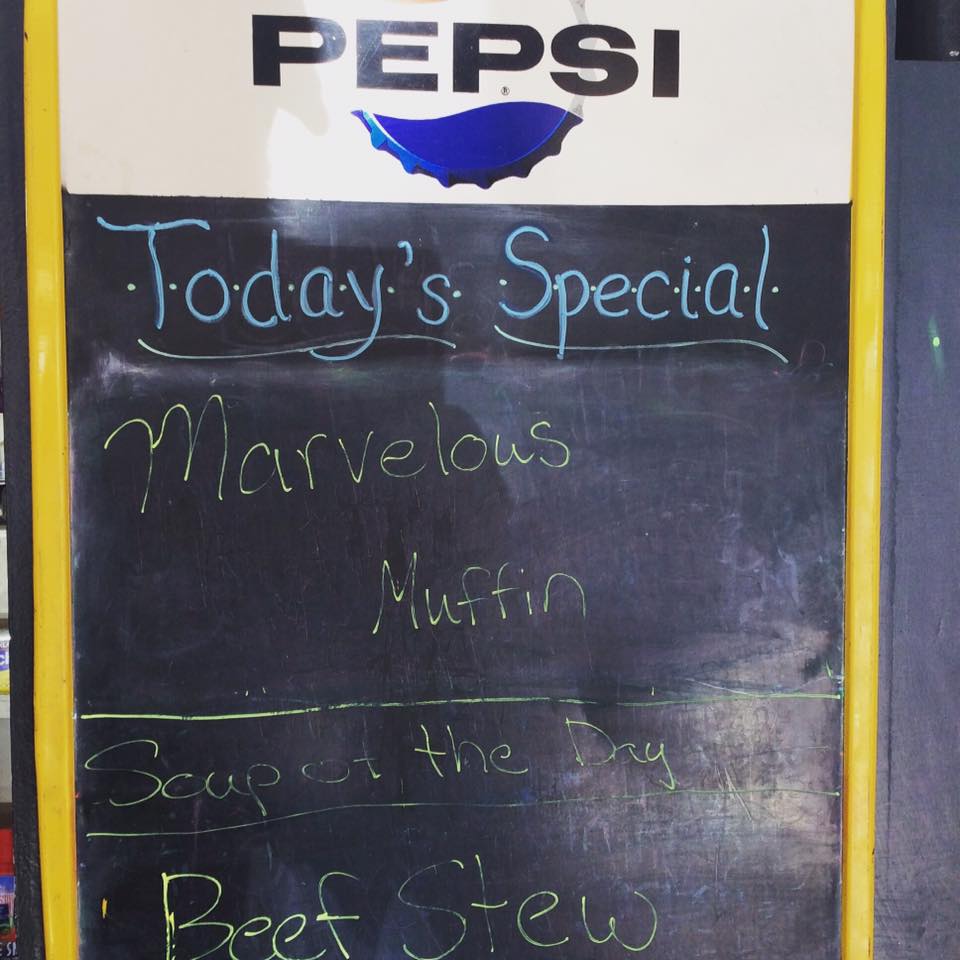 PEPSI
Today's Special
Marvelous
Muffin
Soup of the Day
Beef Stew